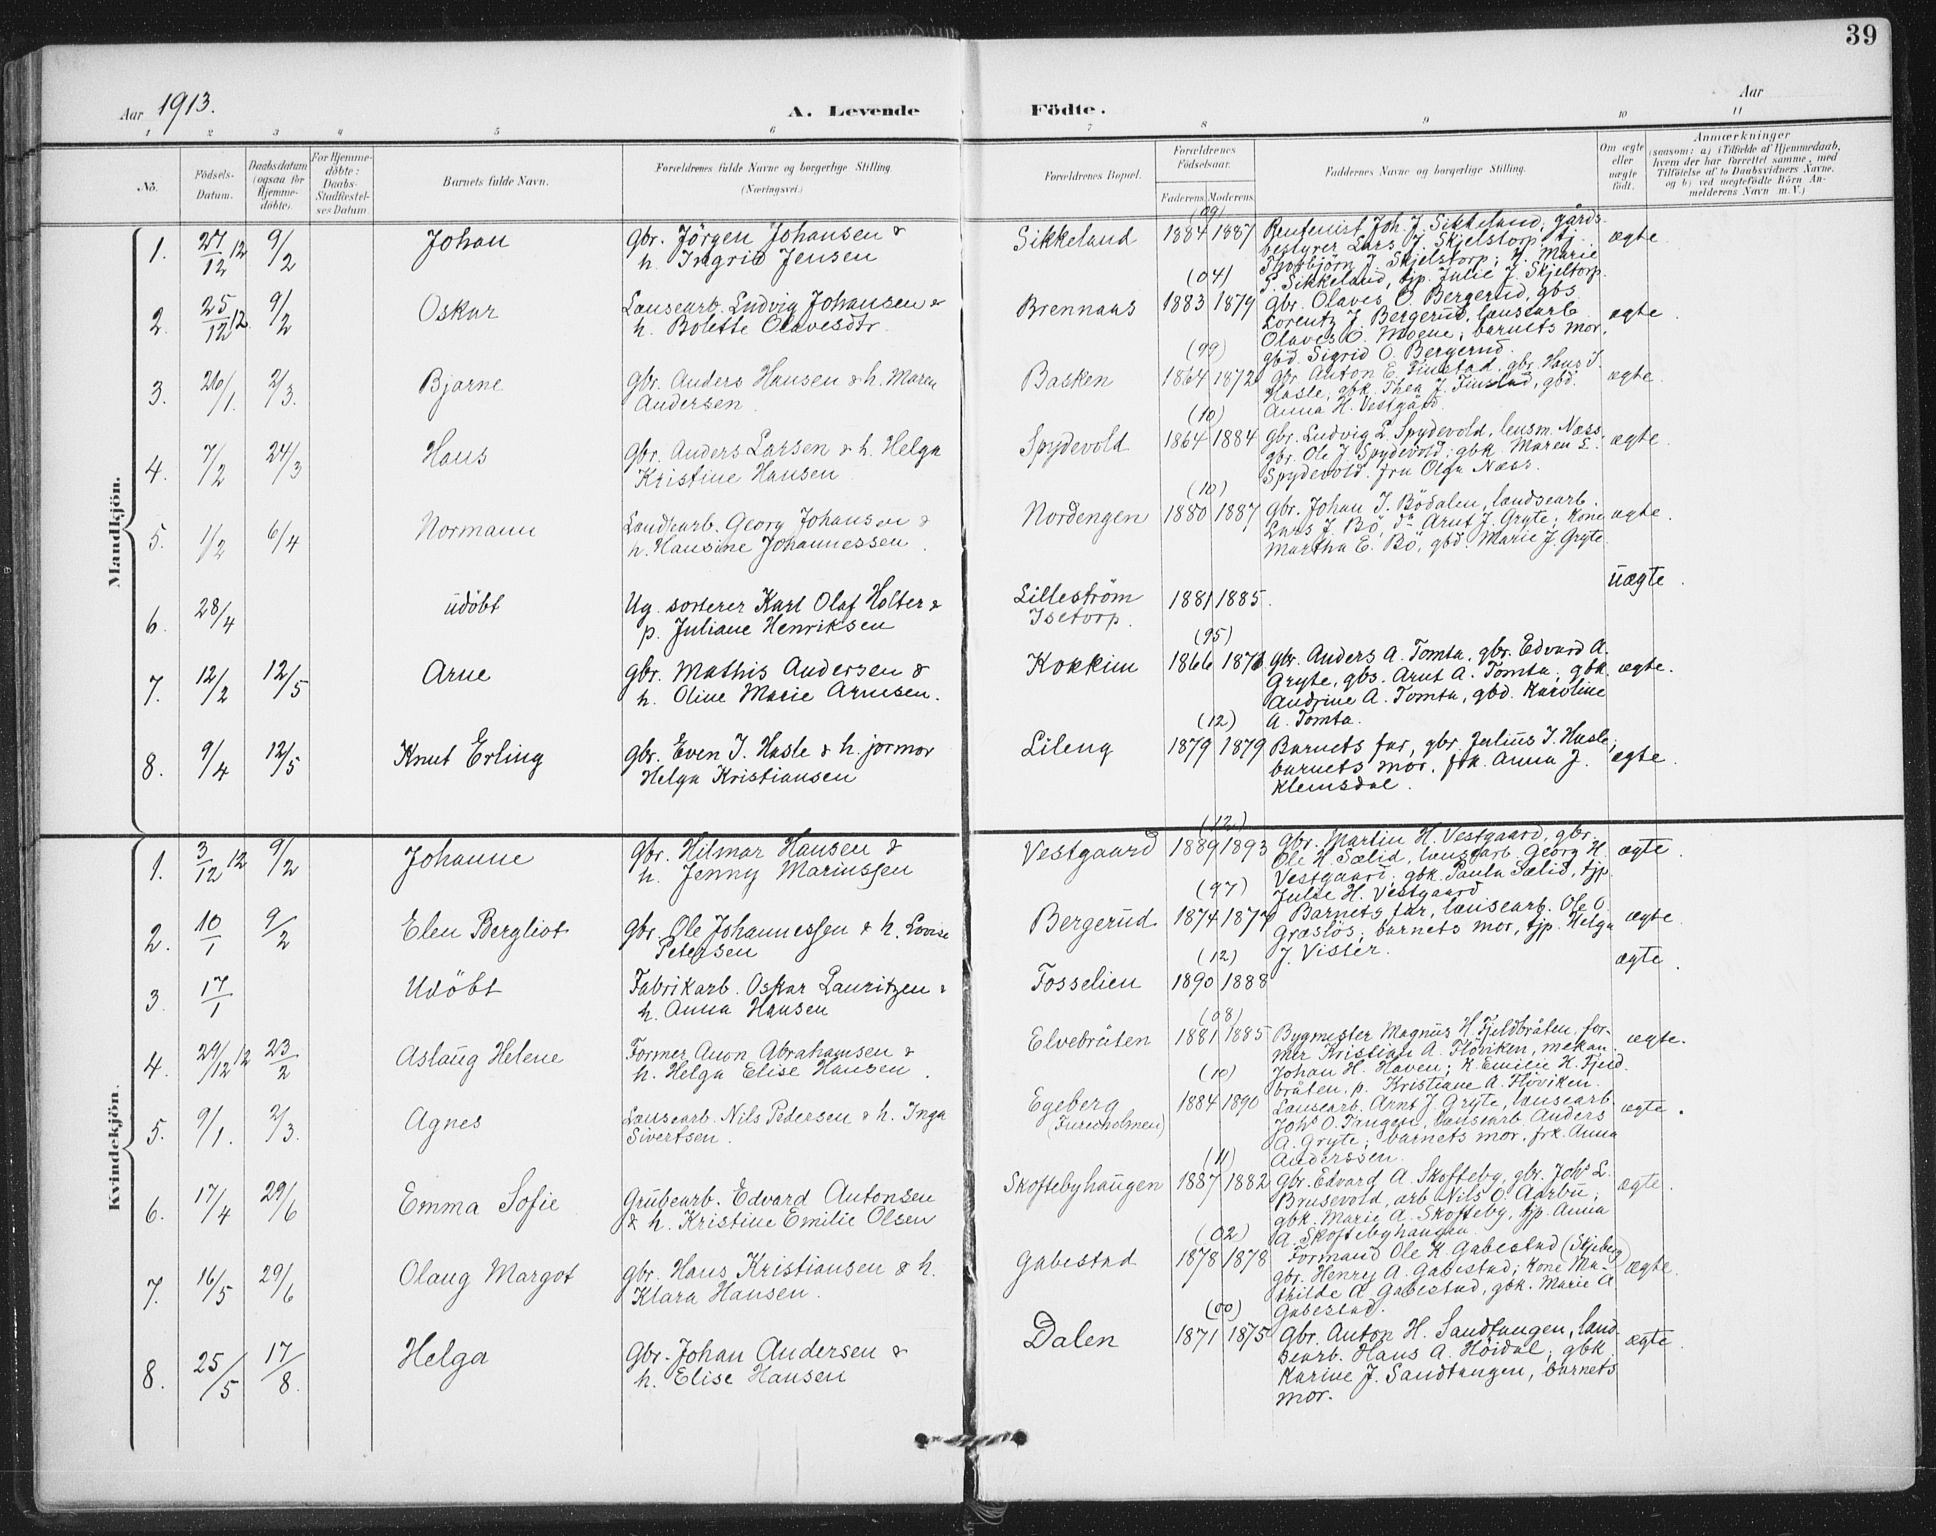 39
Aar 1913.
A. Levende Födte.
Aar
1 2 3 4 5 6 7 8 9 10 11
No.
Fødsels-Datum.
Daabsdatum (ogsaa for Hjemmedöbte).
For Hjemmedöbte: Daabs-Stadfæstelses Datum
Barnets fulde Navn.
Forældrenes fulde Navne og borgerlige Stilling (Næringsvei.)
Forældrenes Bopæl.
Forældrenes Födselsaar.
Faderens Moderens
Faddernes Navne og borgerlige Stilling.
Om ægte eller uægte födt.
Anmærkninger
(saasom: a) i Tilfælde af Hjemmedaab, hvem der har forrettet samme, med Tilføielse af to Daabsvidners Navne, og b) ved uægtefödte Börn Anmelderens Navn m. V.)
Mandkjön.
1. 27/12 12 9/2 Johan gbr. Jörgen Johansen & h. Ingrid Jensen Sikkeland (09) 1884 1887 Rentenist Joh. J. Sikkeland, gårds-
bestyrer Lars J. Skjelstorp, tj.
Thorbjörn J. Skjelstorp; k. Marie
S. Sikkeland, tjp. Julie J. Skjeltorp. ægte.
2. 25/12 12. 9/2 Oskar Lausearb. Ludvig Johansen & h. Bolette Olavesdtr. Brennaas (04) 1883 1879 gbr. Olaves O. Bergerud, gbs.
Lorentz J. Bergerud, lausearb.
Olaves O. Moene; barnets mor,
gbd. Sigrid O. Bergerud. ægte.
3. 26/1. 2/3. Bjarne gbr. Anders Hansen & h. Maren Andersen Basken (99) 1864 1872 gbr. Anton E. Finstad, gbr. Hans J.
Hasle, gbk. Thea J. Finstad, gbd.
Anna H. Vestgård. ægte.
4. 7/2 24/3 Hans gbr. Anders Larsen & h. Helga Kristine Hansen Spydevold (10) 1864 1884 gbr. Ludvig L. Spydevold, lensm. Næss,
gbr. Ole J. Spydevold; gbk. Maren L.
Spydevold. fru Olga Næss. ægte.
5. 1/2 6/4 Normann Landbearb. Georg Johansen & h. Hansine Johannessen. Nordengen (10) 1880 1887 gbr. Johan J. Bödalen, landsearb.
Lars J. Bö, do Arnt J. Gryte; kone
Martha E. Bö, gbd. Marie J. Gryte ægte.
6. 28/4 udöbt Ug. sorterer Karl Olaf Holter & p. Juliane Henriksen Lilleström
Isetorp. 1881 1885. uægte.
7. 12/2 12/5 Arne gbr. Mathis Andersen & h. Oline Marie Arnesen. Kokkim (95) 1866 1876 gbr. Anders A. Tomta, gbr. Edvard A.
Gryte, gbs. Arnt A. Tomta; gbk.
Andrine A. Tomta, gbd. Karoline
A. Tomta. ægte.
8. 9/4 12/5 Knut Erling gbr. Even J. Hasle & h. jormor Helga Kristiansen Lileng (12) 1879 1879 Barnets far, gbr. Julius J. Hasle;
barnets mor, frk. Anna J.
Klemsdal. ægte.
Kvindekjön.
1. 3/12 12 9/2 Johanne gbr. Hilmar Hansen & h. Jenny Mariussen Vestgaard (12) 1889 1893 gbr. Martin H. Vestgaard, gbr.
Ole H. Sælid, lausearb. Georg H.
Vestgaard; gbk. Paula Sælid, tjp.
Julie H. Vestgaard ægte.
2. 10/1 9/2 Elen Bergliot gbr. Ole Johannessen & h. Lovise Petersen Bergerud (97) 1874 1877 Barnets far, lausearb. Ole O.
Græslös; barnets mor, tjp. Helga
J. Vister. ægte.
3. 17/1 Udöbt Fabrikarb. Oskar Lauritzen & h. Anna Hansen Fosselien (12) 1890 1888 ægte.
4. 29/12 12 23/2 Aslaug Helene Former Anon Abrahamsen & h. Helga Elise Hansen. Elvebråten (08) 1881 1885 Bygmester Magnus H. Fjeldbråten, for-
mer Kristian A. Flöviken, mekan.
Johan H. Haven; k. Emilie K. Fjeld-
bråten, p. Kristiane A. Flöviken. ægte.
5. 9/1. 2/3. Agnes Lausearb. Nils Pedersen & h. Inga Sivertsen. Egeberg
(Fureholmen) (10) 1884 1890 Lausearb. Arnt J. Gryte, lausearb.
Johs O. Tangen, lausearb. Anders
A. Gryte; barnets mor, frk. Anna
Anderssen. ægte.
6. 17/4 29/6 Emma Sofie Grubearb. Edvard Antonsen & h. Kristine Emilie Olsen Skoftebyhaugen (11) 1887 1882 gbr. Edvard A. Skofteby, gbr. Johs L.
Brusevold, arb. Nils O. Aarbu;
gbk. Marie A. Skofteby, tjp. Anna
A. Skoftebyhaugen. ægte.
7. 16/5 29/6 Olaug Margot gbr. Hans Kristiansen & h. Klara Hansen. Gabestad (02) 1878 1878 Formand Ole K. Gabestad (Skjeberg)
gbr. Henry A. Gabestad; kone Ma-
thilde A. Gabestad, gbk. Marie A.
Gabestad. ægte.
8. 25/5 17/8. Helga gbr. Johan Andersen & h. Elise Hansen Dalen (00) 1871 1875 gbr. Anton H. Sandtangen, land-
bearb. Hans A. Höidal; gbk.
Karine J. Sandtangen, barnets
mor. ægte.